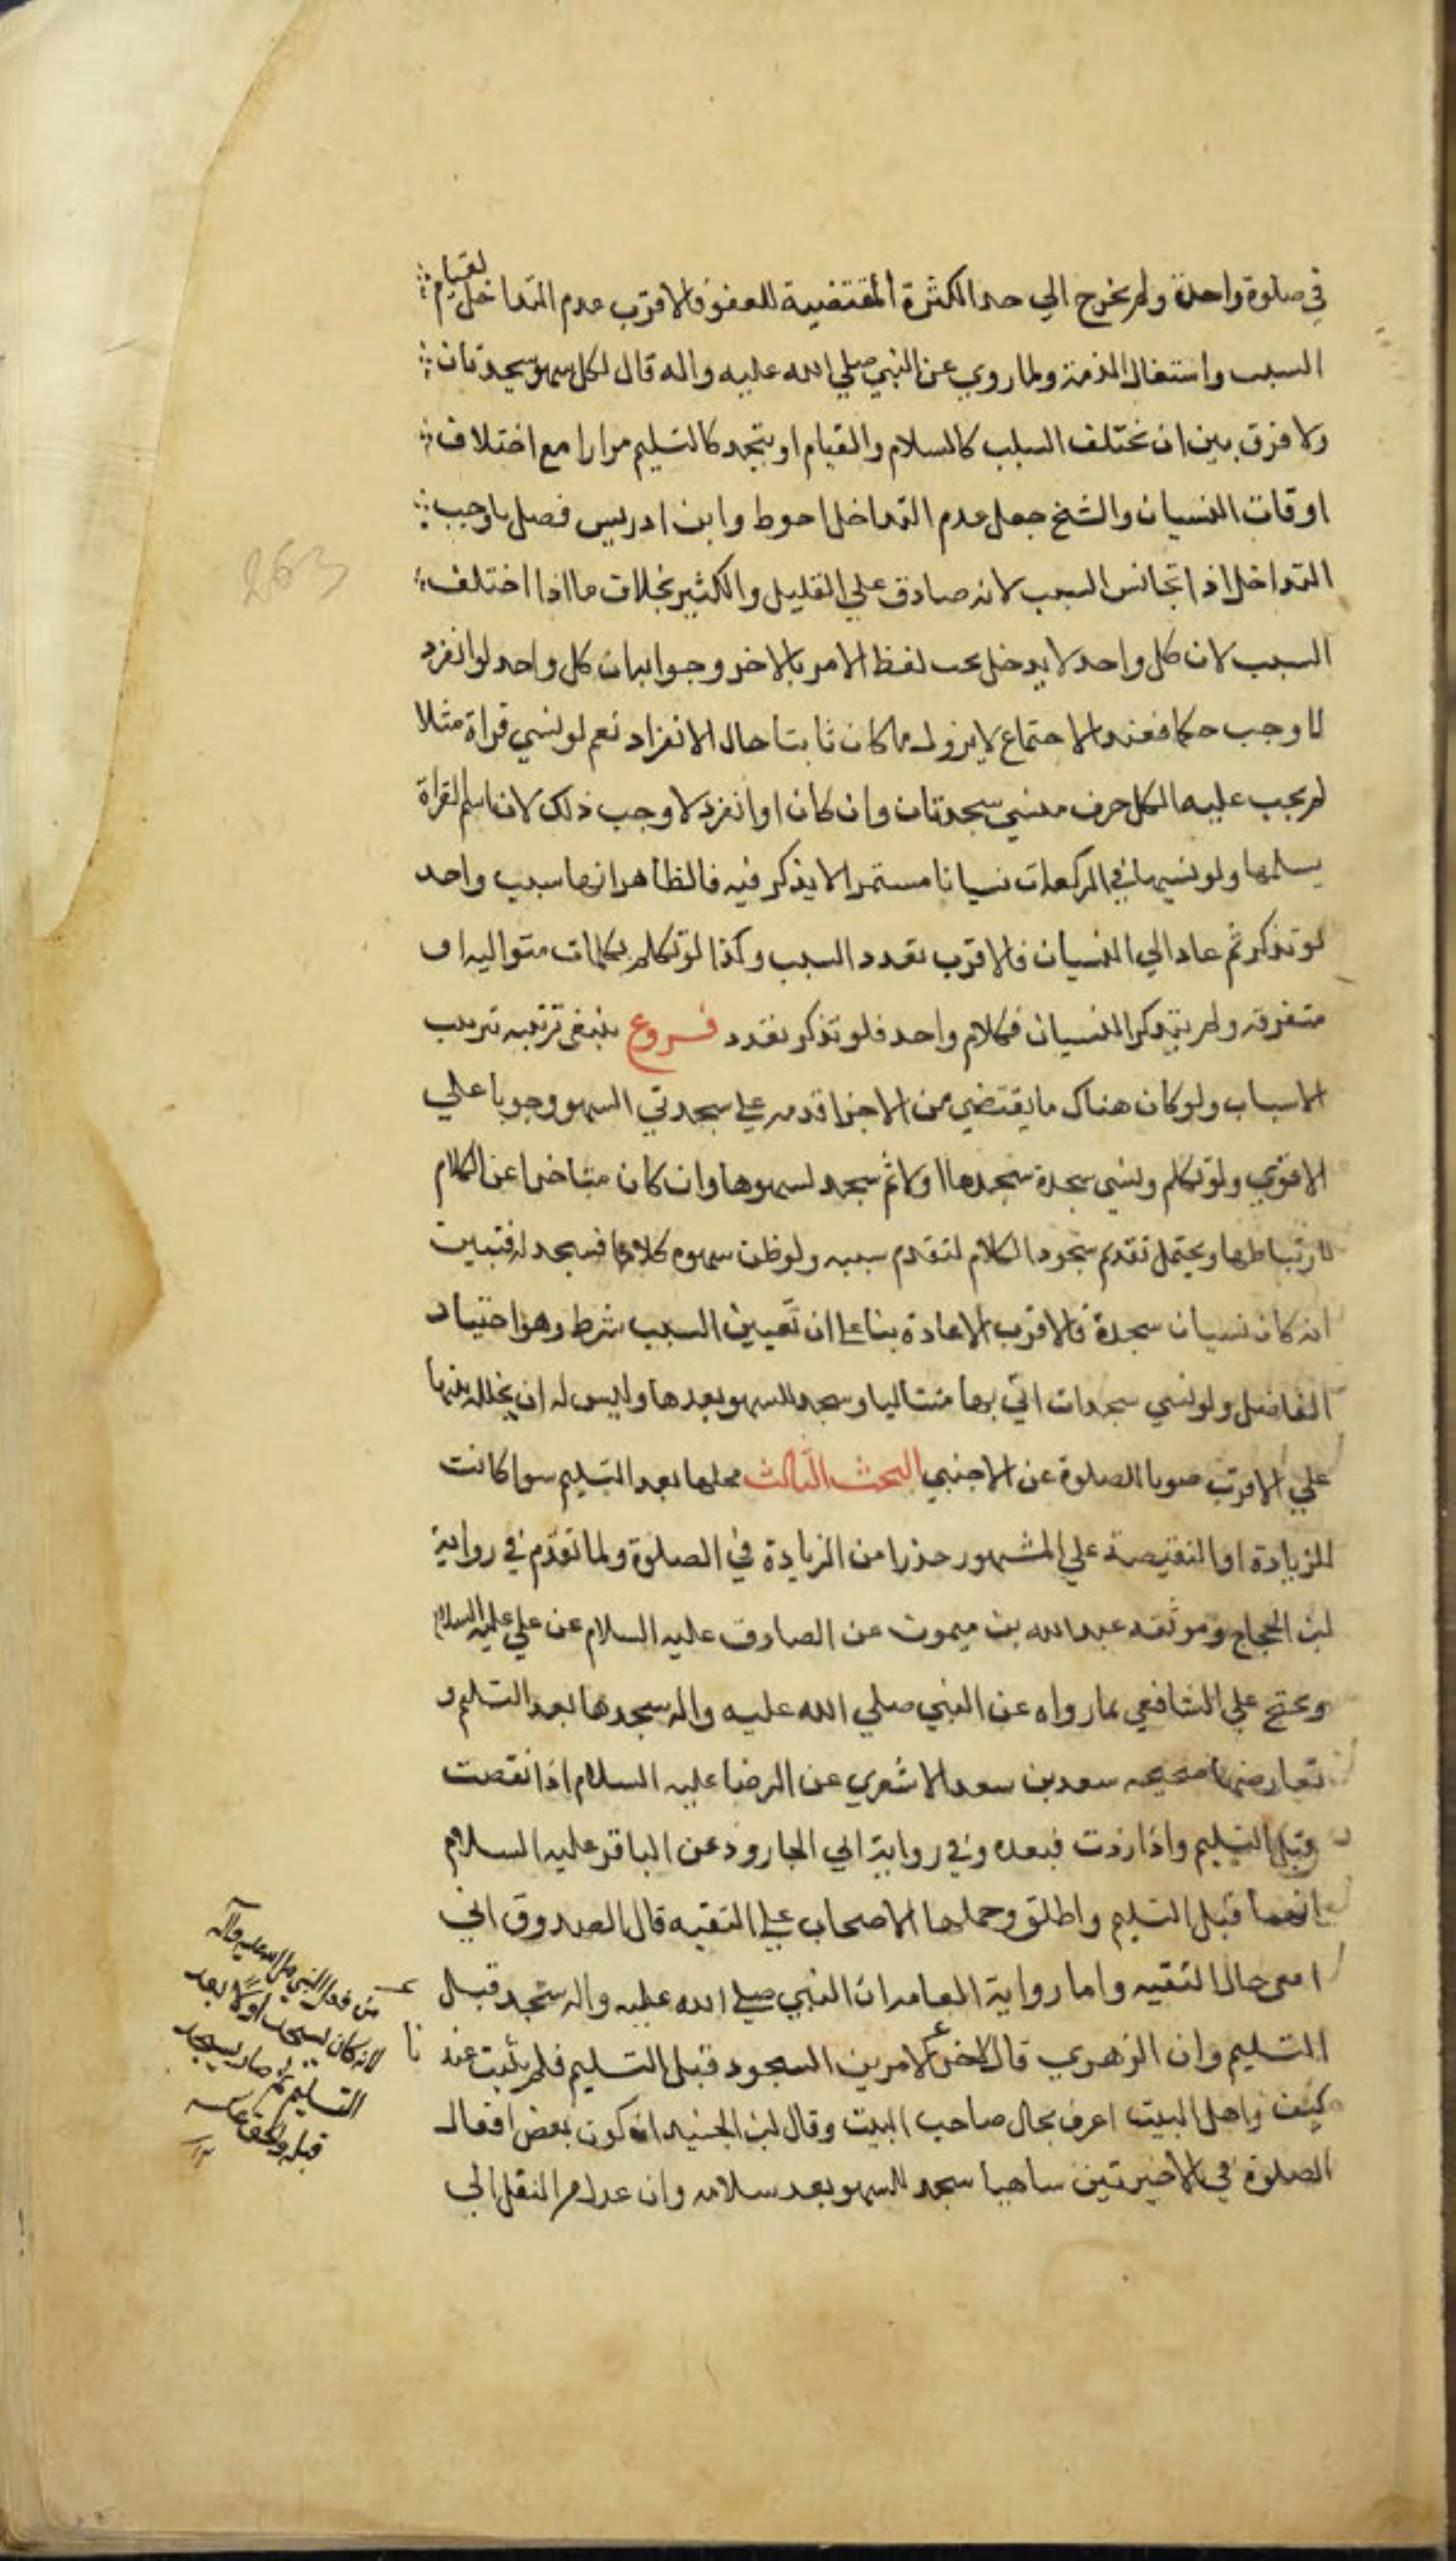 في صلوة واحدة ولم يخرج الي حد الكثرة المقتضية للعفو فالاقرب عدم التداخل لقيام
السبب واشتغال الذمة ولما روي عن النبي صلي الله عليه واله قال لكل سهو سجدتان
ولا فرق بين ان تختلف السبب كالسلام والقيام او يتحد كالتسليم مرارا مع اختلاف
اوقات النسيان والشيخ جعل عدم التداخل احوط وابن ادريس فصل باوجب
التداخل اذا تجانس السبب لانه صادق علي القليل والكثير بخلاف ما اذا اختلف
السبب لان كل واحد لا يدخل تحت لفظ الامر بالاخر وجوابه ان كل واحد لو انفرد
لاوجب حكما فعند الاجتماع لا يزول ما كان ثابتا حال الانفراد نعم لو نسي قراة مثلا
لم يجب عليه لكل حرف منسي سجدتان وان كان لو انفرد لاوجب ذلك لان اسم القراة
يشملها ولو نسيها في الركعات نسيانا مستمرا لا يذكر فيه فالظاهر انها سبب واحد
لو تذكر ثم عاد الي النسيان فالاقرب تعدد السبب وكذا لو تكلم بكلمات متواليه او
متفرقه ولم يتذكر النسيان فكلام واحد فلو تذكر تعدد فروع ينبغي ترتيبه ترتيب
الاسباب ولو كان هناك ما يقتضي من الاجزا قدمه علي سجدتي السهو وجوبا علي
الاقوي ولو تكلم ونسي سجدة سجدها اولا ثم سجد لسهوها وان كان متاخرا عن الكلام
لارتباطها ويحتمل تقديم سجود الكلام لتقدم سببه ولو ظن سهوه كلاما فسجد له فتبين
انه كان نسيان سجدة فالاقرب الاعادة بنا علي ان تعيين السبب شرط وهو اختيار
الفاضل ولو نسي سجدات اتي بها متتاليا وسجد للسهو بعدها وليس له ان يخلله بينها
علي الاقرب صونا للصلوة عن الاجنبي البحث الثالث محلها بعد التسليم سوا كانت
للزيادة او النقيصة علي المشهور حذرا من الزيادة في الصلوة ولما تقدم في رواية
ابن الحجاج وموثقه عبدالله بن ميمون عن الصادق عليه السلام عن علي عليه السلام
ويحتج علي الشافعي بما رواه عن النبي صلي الله عليه واله سجدها بعد التسليم و
تعارضها صحيحه سعد بن سعد الاشعري عن الرضا عليه السلام اذا نقصت
قبل التسليم واذا زدت فبعده وفي رواية ابي الجارود عن الباقر عليه السلام
انهما قبل التسليم واطلق وحملها الاصحاب علي التقيه قال الصدوق اني
افتي حال التقيه واما رواية العامه ان النبي صلي الله عليه واله سجد قبل
التسليم وان الزهري قال اخر الامرين السجود قبل التسليم فلم يثبت عندنا
كيف واهل البيت اعرف بحال صاحب البيت وقال ابن الجنيد ان كون بعض افعال
الصلوة في الاخيرتين ساهيا سجد للسهو بعد سلامه وان عدم النقل الي
من فعل النبي صلي الله عليه وآله
لانه كان يسجد اولا بعد
التسليم ثم صار يسجد
قبله والحق عكسه
263